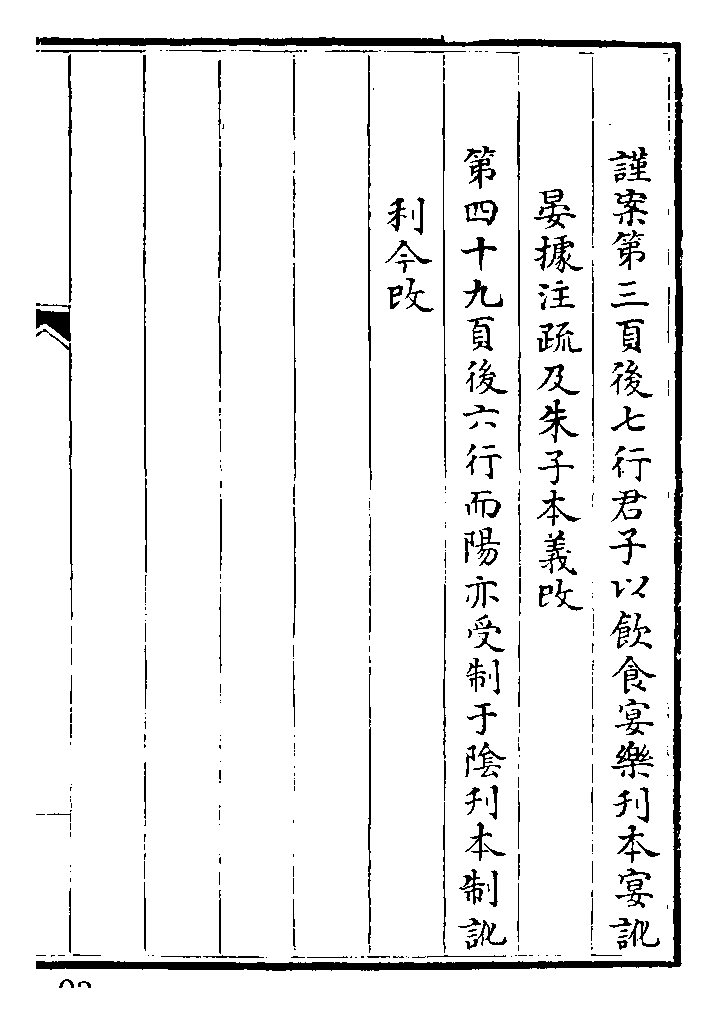 謹案第三頁後七行君子以飲食宴樂刋本宴訛
晏據注疏及朱子本義改
第四十九頁後六行而陽亦受制于陰刋本制訛
利今改